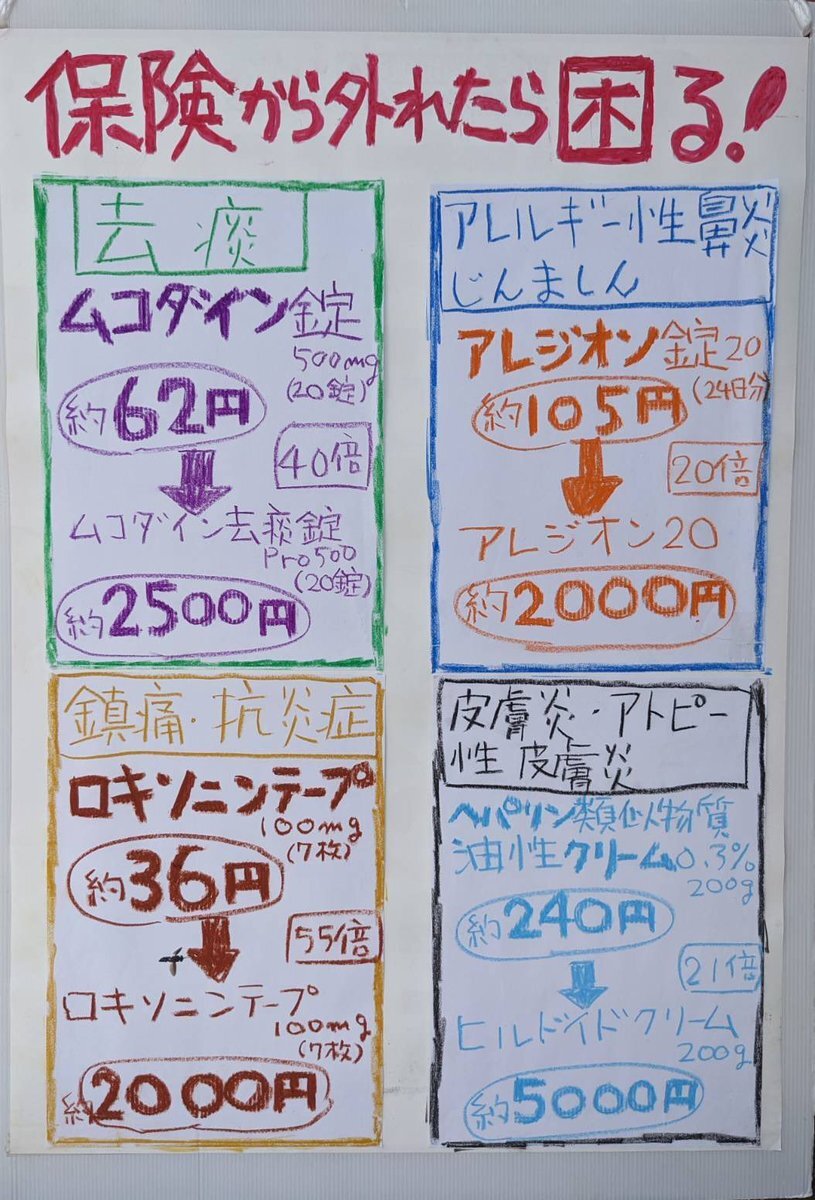 保険から外れたら困る!
去痰
ムコダイン錠
500mg
(20錠)
約62円
40倍
ムコダイン去痰錠
Pro500
(20錠)
約2500円
アレルギー性鼻炎
じんましん
アレジオン錠20
(24日分)
約105円
20倍
アレジオン20
約2000円
鎮痛・抗炎症
ロキソニンテープ
100mg
(7枚)
約36円
55倍
ロキソニンテープ
100mg
(7枚)
約2000円
皮膚炎・アトピー
性皮膚炎
ヘパリン類似物質
油性クリーム0.3%
200g
約240円
21倍
ヒルドイドクリーム
200g
約5000円